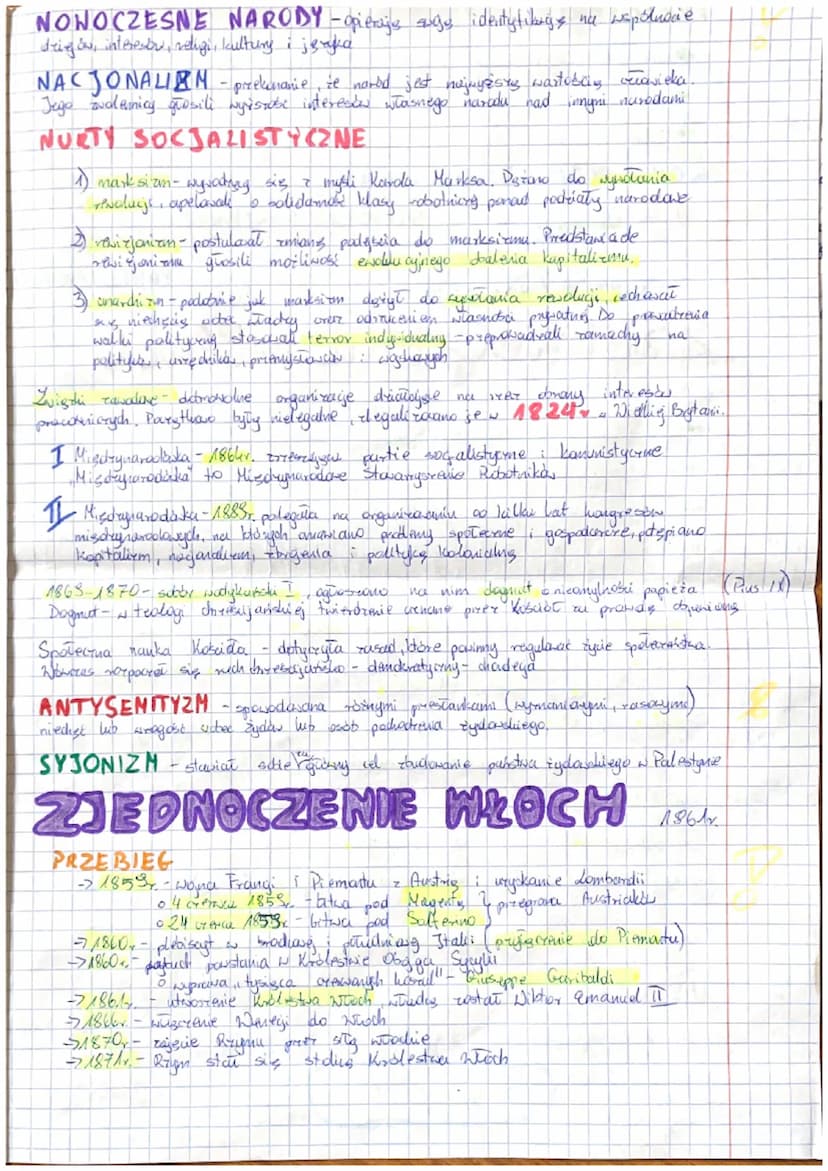 NOWOCZESNE NARODY - opierają swoją identyfikację na wspólnocie
dziejów, interesów, religi, kultury i języka
NACJONALIZM - przekonanie, że naród jest najwyższą wartością człowieka.
Jego zwolennicy głosili wyższość interesów własnego narodu nad innymi narodami
NURTY SOCJALISTYCZNE
1) marksizm - wywodzący się z myśli Karola Marksa. Dążono do wywołania
rewolucji, apelowali o solidarność klasy robotniczej ponad podziały narodowe
2) rewizjonizm - postulował zmianę podejścia do marksizmu. Przedstawiciele
rewizjonizmu głosili możliwość ewolucyjnego obalenia kapitalizmu.
3) anarchizm - podobnie jak marksizm dążył do wywołania rewolucji, cechował
się niechęcią wobec władzy oraz odrzuceniem własności prywatnej. Do prowadzenia
walki politycznej stosowali terror indywidualny - przeprowadzali zamachy na
polityków, urzędników, przemysłowców i wojskowych
Związki zawodowe - dobrowolne organizacje działające na rzecz obrony interesów
pracowniczych. Początkowo były nielegalne, zlegalizowano je w 1824r. w Wielkiej Brytanii.
I Międzynarodówka - 1864r. zrzeszająca partie socjalistyczne i komunistyczne
"Międzynarodówka" to Międzynarodowe Stowarzyszenie Robotników
II Międzynarodówka - 1889r. polegała na organizowaniu co kilka lat kongresów
międzynarodowych, na których omawiano problemy społeczne i gospodarcze, potępiano
kapitalizm, nacjonalizm, zbrojenia i politykę kolonialną
1869-1870 - sobór watykański I, ogłoszono na nim dogmat o nieomylności papieża (Pius IX)
Dogmat - w teologi chrześcijańskiej twierdzenie uznane przez Kościół za prawdę objawioną
Społeczna nauka Kościoła - dotyczyła zasad, które powinny regulować życie społeczeństwa.
Wówczas rozpoczął się ruch chrześcijańsko - demokratyczny - chadecja
ANTYSEMITYZM - spowodowana różnymi przesłankami (wyznaniowymi, rasowymi)
niechęć lub wrogość wobec Żydów lub osób pochodzenia żydowskiego.
SYJONIZM - stawiał sobie za główny cel zbudowanie państwa żydowskiego w Palestynie
ZJEDNOCZENIE WŁOCH 1861r.
PRZEBIEG
-> 1859r. - wojna Francji i Piemontu z Austrią i uzyskanie Lombardii
o 4 czerwca 1859r. - bitwa pod Magentą } przegrana Austriaków
o 24 czerwca 1859r. - bitwa pod Solferino
-> 1860r. - plebiscyt w środkowej i południowej Italii (przyłączenie do Piemontu)
-> 1860r. - wybuch powstania w Królestwie Obojga Sycylii
o wyprawa "tysiąca czerwonych koszul" - Giuseppe Garibaldi
-> 1861r. - utworzenie Królestwa Włoch, władcą został Wiktor Emanuel II
-> 1866r. - włączenie Wenecji do Włoch
-> 1870r. - zajęcie Rzymu przez siły włoskie
-> 1871r. - Rzym stał się stolicą Królestwa Włoch